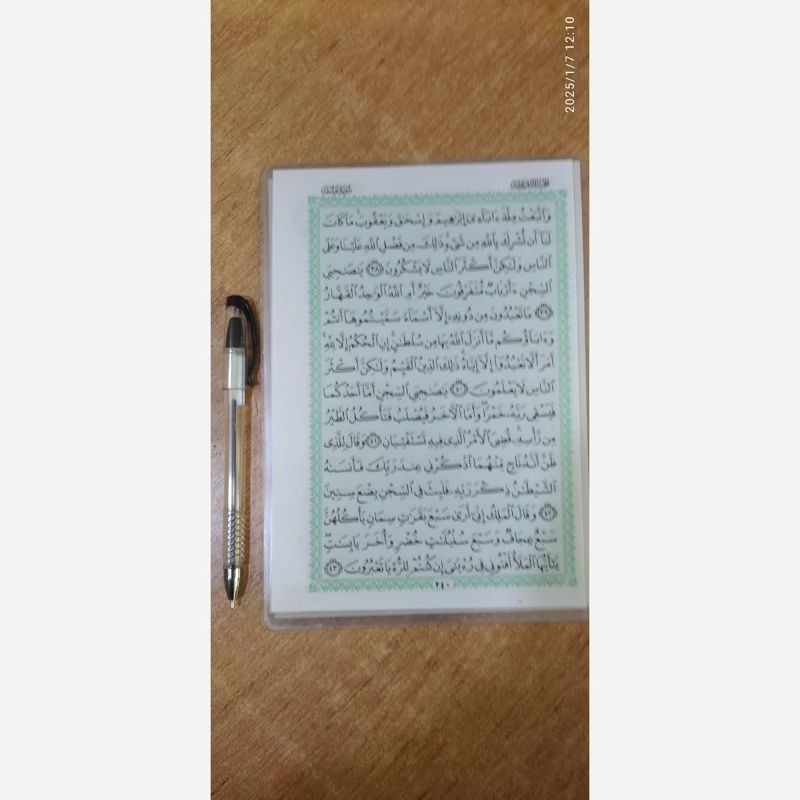 2025/1/7 12:10
سورة يوسف
الجزء الثاني عشر
وَٱتَّبَعْتُ مِلَّةَ ءَابَآءِىٓ إِبْرَٰهِيمَ وَإِسْحَٰقَ وَيَعْقُوبَ مَا كَانَ
لَنَآ أَن نُّشْرِكَ بِٱللَّهِ مِن شَىْءٍ ذَٰلِكَ مِن فَضْلِ ٱللَّهِ عَلَيْنَا وَعَلَى
ٱلنَّاسِ وَلَٰكِنَّ أَكْثَرَ ٱلنَّاسِ لَا يَشْكُرُونَ ٣٨ يَٰصَىٰحِبَىِ
ٱلسِّجْنِ ءَأَرْبَابٌ مُّتَفَرِّقُونَ خَيْرٌ أَمِ ٱللَّهُ ٱلْوَٰحِدُ ٱلْقَهَّارُ
٣٩ مَا تَعْبُدُونَ مِن دُونِهِۦٓ إِلَّآ أَسْمَآءً سَمَّيْتُمُوهَآ أَنتُمْ
وَءَابَآؤُكُم مَّآ أَنزَلَ ٱللَّهُ بِهَا مِن سُلْطَٰنٍ إِنِ ٱلْحُكْمُ إِلَّا لِلَّهِ
أَمَرَ أَلَّا تَعْبُدُوٓا۟ إِلَّآ إِيَّاهُ ذَٰلِكَ ٱلدِّينُ ٱلْقَيِّمُ وَلَٰكِنَّ أَكْثَرَ
ٱلنَّاسِ لَا يَعْلَمُونَ ٤٠ يَٰصَىٰحِبَىِ ٱلسِّجْنِ أَمَّآ أَحَدُكُمَا
فَيَسْقِى رَبَّهُۥ خَمْرًا وَأَمَّا ٱلْءَاخَرُ فَيُصْلَبُ فَتَأْكُلُ ٱلطَّيْرُ
مِن رَّأْسِهِۦ قُضِىَ ٱلْأَمْرُ ٱلَّذِى فِيهِ تَسْتَفْتِيَانِ ٤١ وَقَالَ لِلَّذِى
ظَنَّ أَنَّهُۥ نَاجٍ مِّنْهُمَا ٱذْكُرْنِى عِندَ رَبِّكَ فَأَنسَىٰهُ
ٱلشَّيْطَٰنُ ذِكْرَ رَبِّهِۦ فَلَبِثَ فِى ٱلسِّجْنِ بِضْعَ سِنِينَ
٤٢ وَقَالَ ٱلْمَلِكُ إِنِّىٓ أَرَىٰ سَبْعَ بَقَرَٰتٍ سِمَانٍ يَأْكُلُهُنَّ
سَبْعٌ عِجَافٌ وَسَبْعَ سُنۢبُلَٰتٍ خُضْرٍ وَأُخَرَ يَابِسَٰتٍ
يَٰٓأَيُّهَا ٱلْمَلَأُ أَفْتُونِى فِى رُءْيَٰىَ إِن كُنتُمْ لِلرُّءْيَا تَعْبُرُونَ ٤٣
٢٤٠